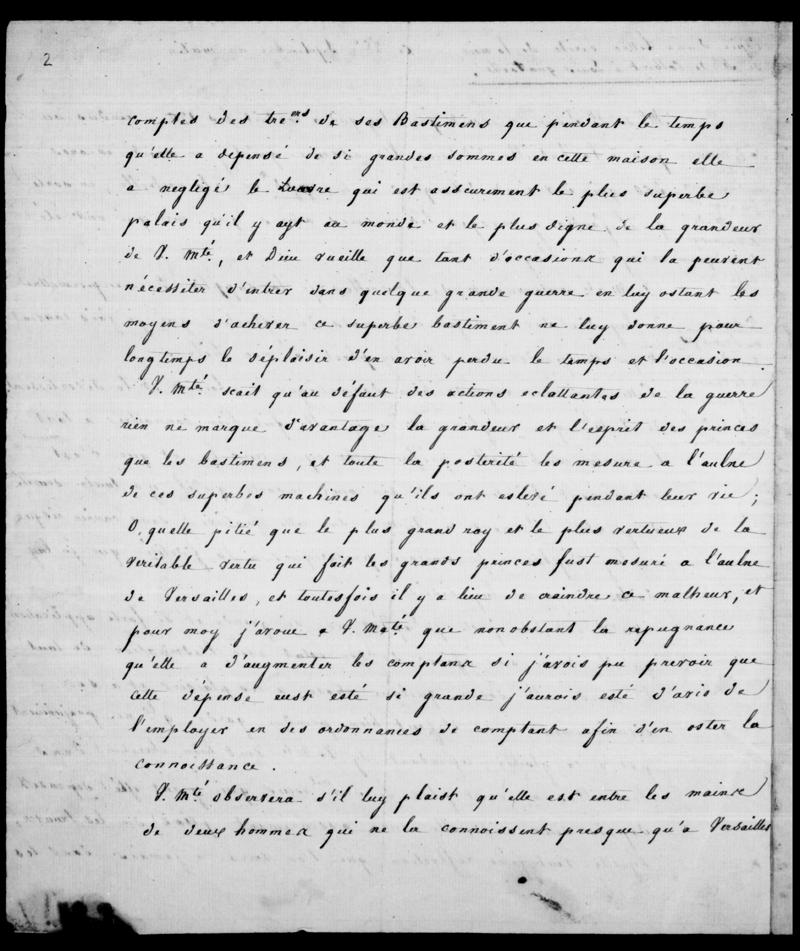 2
comptes des tre^ors de ses Bastimens que pendant le temps
qu'elle a dépensé de si grandes sommes en cette maison elle
a negligé le Louvre qui est asscurement le plus superbe
palais qu'il y ayt au monde et le plus digne de la grandeur
de V. Mté, et Dieu vueille que tant d'occasions qui la peuvent
nécessiter d'entrer dans quelque grande guerre en luy ostant les
moyens d'achever ce superbe bastiment ne luy donne pour
longtemps le déplaisir d'en avoir perdu le temps et l'occasion.
V. Mté scait qu'au défaut des actions eclattantes de la guerre
rien ne marque d'avantage la grandeur et l'esprit des princes
que les bastimens, et toute la posterité les mesure a l'aulne
de ces superbes machines qu'ils ont eslevé pendant leur vie;
O, quelle pitié que le plus grand roy et le plus vertueux de la
veritable vertu qui fait les grands princes fust mesuré a l'aulne
de Versailles, et toutesfois il y a lieu de craindre ce malheur, et
pour moy j'avoue a V. Maté que nonobstant la repugnance
qu'elle a d'augmenter les comptans si j'avois pu prevoir que
cette dépense eust esté si grande j'aurois esté d'avis de
l'employer en des ordonnances de comptant afin d'en oster la
connoissance.
V. Mté observera s'il luy plaist qu'elle est entre les mains
de deux hommes qui ne la connoissent presque qu'a Versailles